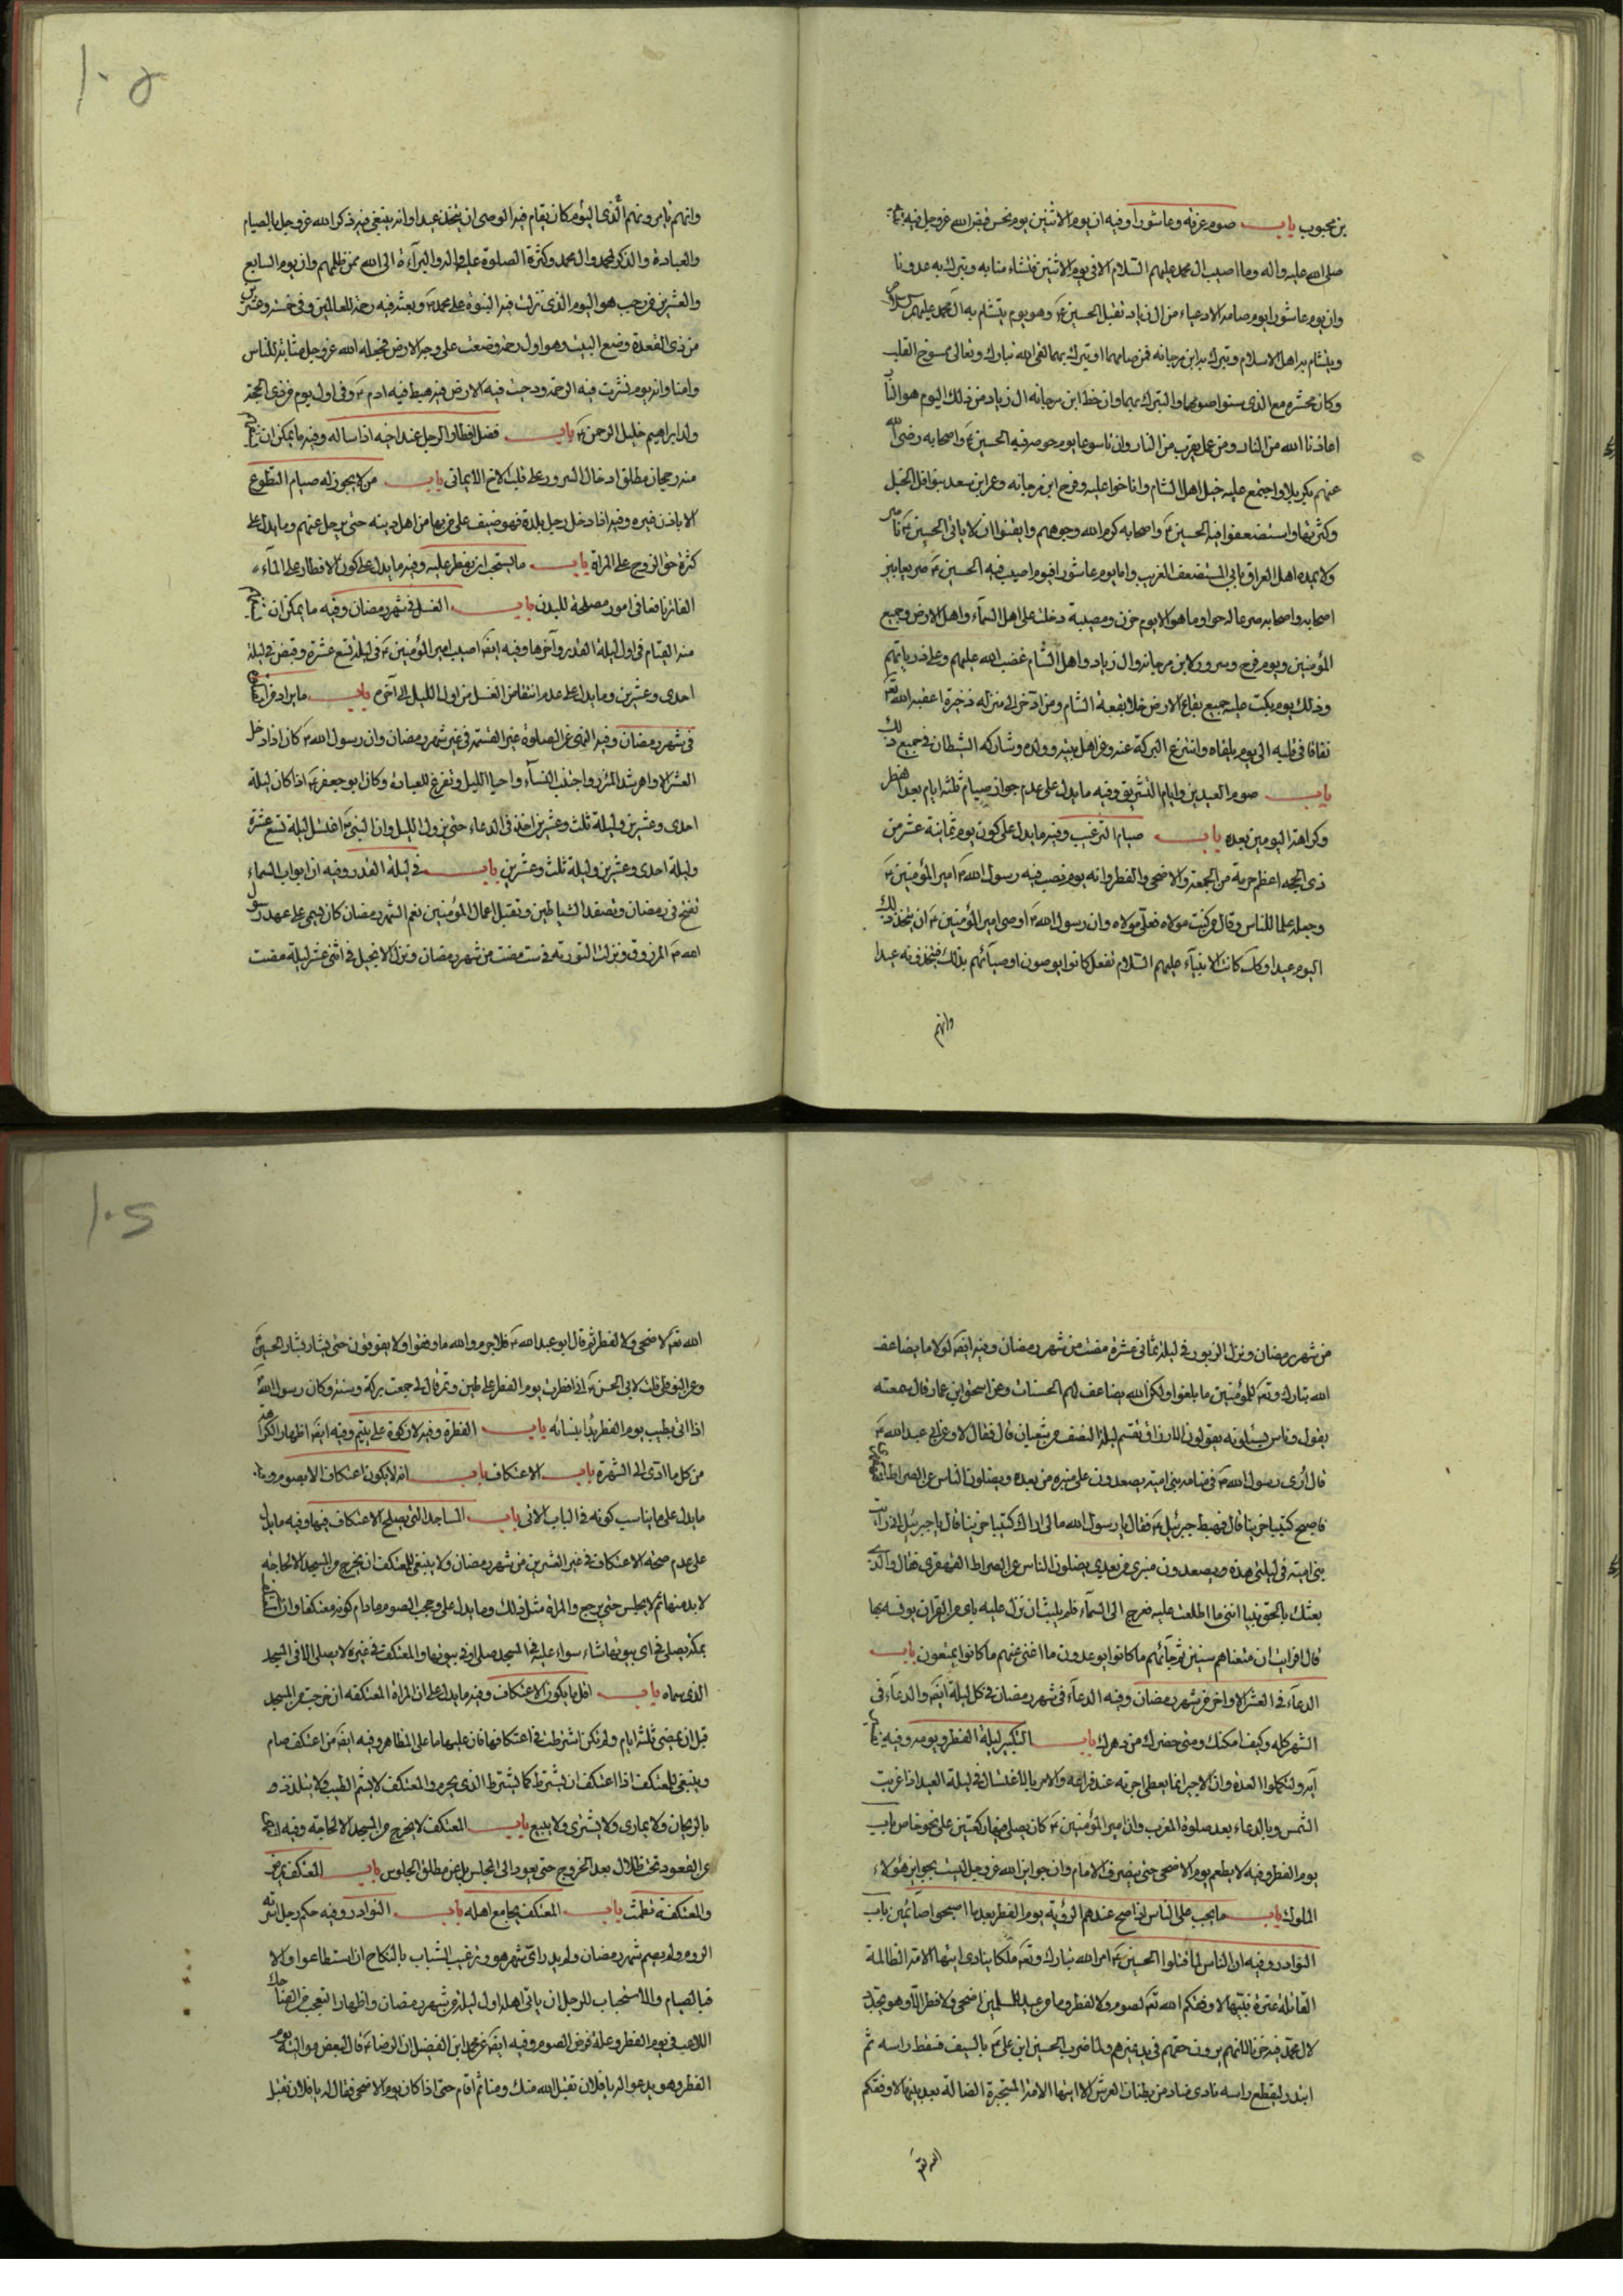 بن محبوب باب صوم عرفه وعاشورا وفيه ان يوم الاثنين يوم نحس قبض الله عزوجل فيه
صلى الله عليه واله وما اصيب ال محمد عليهم السلام الا في يوم الاثنين فتشاءمنا به وتبرك به عدونا
وان يوم عاشورا يوم صامه الادعياء من ال زياد بقتل الحسين ع وهو يوم يتشام به ال محمد عليهم السلام
ويتشام به اهل الاسلام وتبرك به ابن مرجانه فمن صامهما او تبرك بهما لقى الله تبارك وتعالى ممسوخ القلب
وكان محشره مع الذى سنوا صومهما والتبرك بهما وان حظ ابن مرجانه ال زياد من ذلك اليوم هو النار
اعاذنا الله من النار ومن عمل يقرب من النار وان تاسوعا يوم حوصر فيه الحسين ع واصحابه رضى الله
عنهم بكربلا واجتمع عليه خيل اهل الشام واناخوا عليه وفرح ابن مرجانه وعمر ابن سعد بتوافر الخيل
وكثرتها واستضعفوا فيه الحسين ع واصحابه كرم الله وجوههم وايقنوا ان لا ياتى الحسين ع ناصر
ولا يمده اهل العراق بابي المستضعف الغريب واما يوم عاشورا فيوم اصيب فيه الحسين ع صريعا بين
اصحابه واصحابه صرعا له حوله وما هو الا يوم حزن ومصيبة دخلت على اهل السماء واهل الارض وجميع
المؤمنين ويوم فرح وسرور لابن مرجانه وال زياد واهل الشام غضب الله عليهم وعلى ذرياتهم
وذلك يوم بكت عليه جميع بقاع الارض خلا بقعة الشام ومن ادخر الى منزله ذخيرة اعقبه الله تعالى
نفاقا في قلبه الى يوم يلقاه وانتزع البركة عنه وعن اهل بيته وولده وشاركه الشيطان في جميع ذلك
باب صوم العيدين وايام التشريق وفيه ما يدل على عدم جواز صيام ثلثه ايام بعد الفطر
وكراهة اليومين بعده باب صيام الترغيب وفيه ما يدل على كون يوم ثمانية عشر من
ذى الحجه اعظم حرمة من الجمعة والاضحى والفطر وانه يوم نصب فيه رسول الله ص امير المؤمنين ع
وجعله علما للناس وقال من كنت مولاه فعلى مولاه وان رسول الله ص اوصى امير المؤمنين ع ان يتخذ ذلك
اليوم عيدا وكك كانت الانبياء عليهم السلام تفعل كانوا يوصون اوصيائهم بذلك فيتخذونه عيدا
وانهم
١٠٥
وانهم يامرونهم الذى اليوم كان يقام فيه الوصى ان يتخذ عيدا وانه ينبغى فيه ذكر الله عزوجل بالصيام
والعبادة والذكر لمحمد وال محمد وكثرة الصلوة عليه واله والبراءة الى الله ممن ظلمهم وان يوم السابع
والعشرين من رجب هو اليوم الذى نزلت فيه النبوة على محمد ص وبعث فيه رحمة للعالمين وفى خمس وعشرين
من ذى القعدة وضع البيت وهو اول رحمة وضعت على وجه الارض فجعله الله عزوجل مثابة للناس
وامنا وانه يوم نشرت فيه الرحمة ودحيت فيه الارض فيه هبط فيه ادم ع وفى اول يوم من ذى الحجة
ولد ابراهيم خليل الرحمن ع باب فضل افطار الرجل عند اخيه اذا ساله وفيه ما يمكن ان
منه رجحان مطلق ادخال السرور على قلب الاخ الايمانى باب من لا يجوز له صيام التطوع
الا باذن غيره وفيه اذا دخل رجل بلدة فهو ضيف على من بها من اهل دينه حتى يرحل عنهم وما يدل على
كثرة حق الزوج على المراة باب ما يستحب ان يفطر عليه وفيه ما يدل على كون الافطار على الماء
الفاتر نافعا في امور مصلحة للبدن باب الغسل في شهر رمضان وفيه ما يمكن ان
منه القيام في اول ليلة القدر وآخرها وفيه ايضا اصيب امير المؤمنين ع في ليلة تسع عشرة وقبض في ليلة
احدى وعشرين وما يدل على عدم انتقاض الغسل من اول الليل الى آخره باب ما يزاد من
في شهر رمضان وفيه النهى عن الصلوة غير القسمة في غير شهر رمضان وان رسول الله ص كان اذا دخل
العشر الاواخر شد المئزر واجتنب النساء واحيا الليل وتفرغ للعبادة وكان ابو جعفر ع اذا كان ليلة
احدى وعشرين وليلة ثلث وعشرين اخذ في الدعاء حتى يزول الليل وان النبى ص اغتسل ليلة تسع عشرة
وليلة احدى وعشرين وليلة ثلث وعشرين باب في ليلة القدر وفيه ان ابواب السماء
تفتح في رمضان وتصفد الشياطين وتقبل اعمال المؤمنين نعم الشهر رمضان كان يسمى على عهد رسول
الله ص المرزوق ونزلت التورية في ست مضت من شهر رمضان ونزل الانجيل في اثنى عشر ليلة مضت
من شهر رمضان ونزل الزبور في ليلة ثمانى عشرة مضت من شهر رمضان وفيه ايضا لولا ما يضاعف
الله تبارك وتعالى للمؤمنين ما بلغوا ولكن الله يضاعف لهم الحسنات وعن اسحق ابن عمار قال سمعته
يقول وناس يسئلونه يقولون الارزاق تقسم ليلة النصف من شعبان قال فقال لا وعن ابى عبد الله ع
قال ارى رسول الله ص في منامه بنى امية يصعدون على منبره من بعده ويضلون الناس عن الصراط
فاصبح كئيبا حزينا قال فهبط جبرئيل ع فقال يا رسول الله مالى اراك كئيبا حزينا قال يا جبرئيل انى رايت
بنى امية في ليلتى هذه ويصعدون منبرى من بعدى يضلون الناس عن الصراط القهقرى فقال والذى
بعثك بالحق نبيا اننى ما اطلعت عليه فعرج الى السماء فلم يلبث ان نزل عليه باى من القران يونسه بها
قال افرايت ان متعناهم سنين ثم جاءهم ما كانوا يوعدون ما اغنى عنهم ما كانوا يمتعون باب
الدعاء في العشر الاواخر من شهر رمضان وفيه الدعاء في شهر رمضان في كل ليلة ايضا والدعاء في
الشهر كله وكيف امكنك ومتى حضرك من دهرك باب التكبير ليلة الفطر ويومه وفيه
آية ولتكملوا العدة وان الاجير انما يعطى اجرته عند فراغه والامر بالاغتسال في ليلة العيد اذا غربت
الشمس وبالدعاء بعد صلوة المغرب وان امير المؤمنين ع كان يصلى فيها ركعتين على نحو خاص باب
يوم الفطر وفيه لا يطعم يوم الاضحى حتى ينصرف الامام وان جوايز الله عزوجل ليست بجوايز هؤلاء
الملوك باب ما يجب على الناس اذا صح عندهم الرؤية يوم الفطر بعد ما اصبحوا صائمين باب
النوادر وفيه ان الناس لما قتلوا الحسين ع امر الله تبارك وتعالى ملكا ينادى ايتها الامة الظالمة
القاتلة عترة نبيها لا وفقكم الله تعالى لصوم ولا لفطر وما من عيد للمسلمين اضحى ولا فطر الا وهو يجدد
لال محمد فيه حزنا لانهم يرون حقهم في يد غيرهم ولما ضرب الحسين ابن على ع بالسيف فسقط راسه ثم
ابتدر ليقطع راسه نادى مناد من بطنان العرش الا ايتها الامة المتحيرة الضالة بعد نبيها لا وفقكم
الله تعالى
١٠٦
الله تعالى لاضحى ولا لفطر ثم قال ابو عبد الله ع فلا جرم والله ما وفقوا ولا يوفقون حتى يثار بثار الحسين ع
وعن النوفلى قلت لابى الحسن ع انى افطرت يوم الفطر على طين وتمر قال لى جمعت بركة وسنة وكان رسول الله ص
اذا اتى بطيب يوم الفطر بدا بنسائه باب الفطرة وفيه لا زكوة على يتيم وفيه ايضا اظهار
من كل ما ادى الى الشهرة باب الاعتكاف باب انه لا يكون اعتكاف الا بصوم وفيه
ما يدل على ما يناسب كونه في الباب الاتى باب المساجد التى يصلح الاعتكاف فيها وفيه ما يدل
على عدم صحة الاعتكاف في غير العشرين من شهر رمضان ولا ينبغى للمعتكف ان يخرج من المسجد الا لحاجة
لا بد منها ثم لا يجلس حتى يرجع والمراة مثل ذلك وما يدل على وجوب الصوم مادام كونه معتكفا وان
بمكة يصلى في اى بيوتها شاء سواء عليه في المسجد صلى او في بيوتها والمعتكف في غيره لا يصلى الا في المسجد
الذى سماه باب اقل ما يكون الاعتكاف وفيه ما يدل على ان المراة المعتكفه ان خرجت من المسجد
قبل ان يمضى ثلثة ايام ولم تكن اشترطت في اعتكافها فان عليها ما على المظاهر وفيه ايضا من اعتكف صام
وينبغى للمعتكف اذا اعتكف ان يشترط كما يشترط الذى يحرم والمعتكف لا يشم الطيب ولا يتلذذ
بالريحان ولا يمارى ولا يشترى ولا يبيع باب المعتكف لا يخرج من المسجد الا لحاجة وفيه
عن القعود تحت ظلال بعد الخروج حتى يعود الى المجلس بل عن مطلق الجلوس باب المعتكف يمرض
والمعتكفة تطمث باب المعتكف يجامع اهله باب النوادر وفيه حكم رجل اسرته
الروم ولم يصم شهر رمضان ولم يدر اى شهر هو وترغيب الشباب بالنكاح ان استطاعوا والا
فبالصيام والاستحباب للرجل ان ياتى اهله اول ليلة من شهر رمضان واظهار التعجب من الضاحك
اللاعب في يوم الفطر وعلة فرض الصوم وفيه ايضا عن محمد ابن الفضيل ان الرضا ع قال لبعض مواليه يوم
الفطر وهو يدعو له يا فلان تقبل الله منك ومنا ثم اقام حتى اذا كان يوم الاضحى فقال له يا فلان تقبل